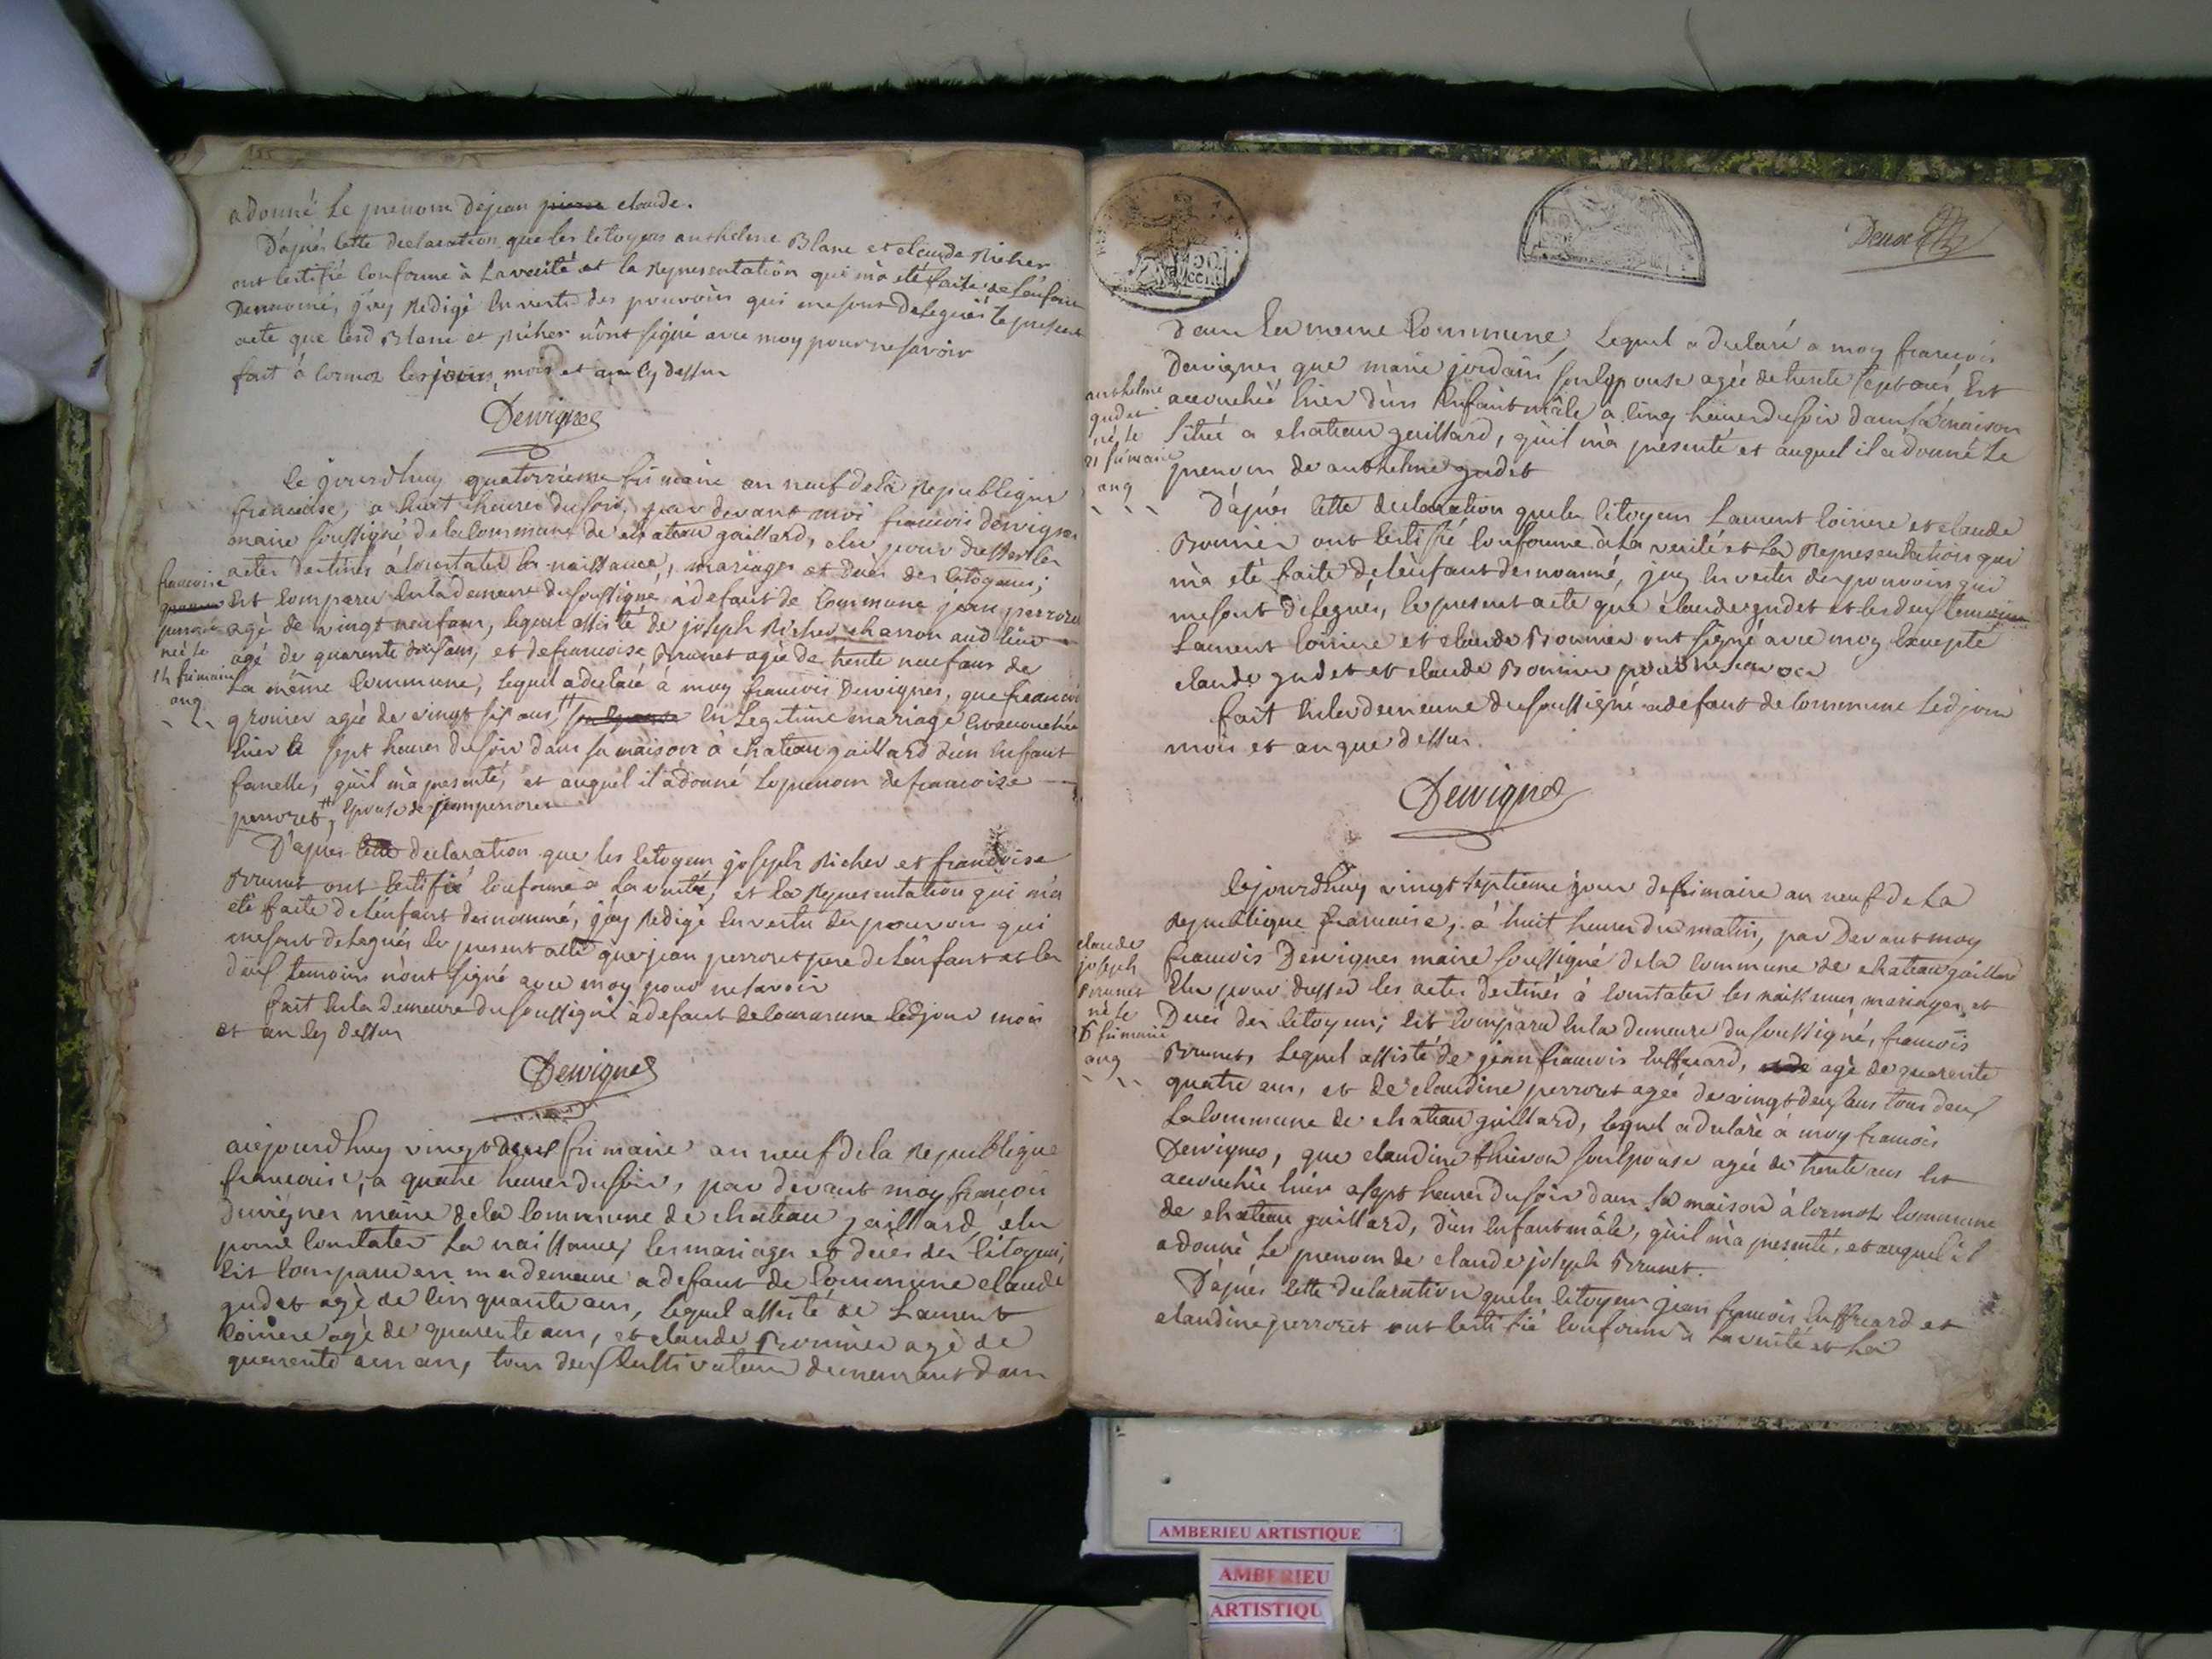 a donné le prenom de jean pierre claude.
D'après cette declaration que les citoyens anthelme Blanc et claude Richer
ont certifié conforme à la verité et la Representation qui m'a été faite de l'enfant
Denommé, j'ay Redigé en vertu des pouvoirs qui me sont delegués le present
acte que lesd Blanc et Richer n'ont signé avec moy pour ne savoir
fait à cormoz les jours, mois et an cy dessus
Dewignes
ce jourdhuy quatorzieme frimaire an neuf de la Republique
francaise, a huit heures du soir, par devant moi francois dewignes
maire soussigné de la commune de chateau gaillard, elu pour dresser les
actes destinés à constater les naissance, mariages et decès des citoyens;
francoise
perroret
née le
14 frimaire
an 9
Est comparu en la demeure du soussigné a defaut de commune jean perroret
agé de vingt neuf ans, lequel assisté de joseph Richer charron aud lieu
agé de quarente six ans, et de francoise Brunet agée de trente neuf ans de
la même commune, lequel a declaré à moy francois Dewignes, que francoise
gronier agée de vingt six ans, # son epouse en Legitime mariage est accouchée
hier le sept heures du soir dans sa maison à chateau gaillard d'un enfant
femelle, qu'il m'a presenté, et auquel il a donné le prenom de francoise
perroret, # epouse de jean perroret
D'après cette declaration que les citoyens joseph Richer et francoise
Brunet ont certifié conforme a la verité, et la Representation qui m'a
été faite de l'enfant denommé, j'ay Redigé en vertu des pouvoirs qui
me sont delegués le present acte que jean perroret pere de l'enfant et les
deux temoins n'ont signé avec moy pour ne savoir
fait en la demeure du soussigné a defaut de commune led jour mois
et an cy dessus
Dewignes
aujourdhuy vingt deux frimaire an neuf de la Republique
francaise, a quatre heures du soir, par devant moy francois
dewignes maire de la commune de chateau gaillard, elu
pour constater la naissance, les mariages et decès des citoyens,
est comparu en ma demeure a defaut de commune claude
gudet agé de cinquante ans, lequel assisté de Laurent
loiriere agé de quarente ans, et claude Bonnier agé de
quarente cinq ans, tous deux cultivateurs demeurant dans
50
CENT
Deux
dans la meme commune, Lequel a declaré a moy francois
Dewignes que marie jordain son epouse agée de trente sept ans Est
anthelme
gudet
né le
21 frimaire
an 9
accouchée hier d'un Enfant mâle a cinq heures du soir dans sa maison
située a chateau gaillard, qu'il m'a presenté et auquel il a donné le
prenom de anthelme gudet
D'après cette declaration que les citoyens Laurent loiriere et claude
Bonnier ont certifié conforme à la verité et la Representation qui
m'a été faite de l'enfant denommé, j'ay en vertu des pouvoirs qui
me sont delegués, le present acte que claude gudet et les deux temoins
Laurent loiriere et claude Bonnier ont signé avec moy Excepté
claude gudet et claude Bonnier pour ne savoir
fait en la demeure du soussigné a defaut de commune led jour
mois et an que dessus.
Dewignes
Cejourdhuy vingt septieme jour de frimaire an neuf de la
Republique francaise, à huit heures du matin, par Devant moy
claude
joseph
Brunet
né le
26 frimaire
an 9
francois Dewignes maire soussigné de la commune de chateau gaillard
Elu pour dresser les actes destinés à constater les naissances, mariages, et
Decès des citoyens; est comparu en la demeure du soussigné, francois
Brunet, Lequel assisté de jean francois , agé de quarente
quatre ans, et de claudine perroret agée de vingt deux ans tous deux
La commune de chateau gaillard, lequel a declaré à moy francois
Dewignes, que claudine thievon son epouse agée de trente ans Est
accouchée hier a sept heures du soir dans sa maison à cormoz commune
de chateau gaillard, d'un Enfant mâle, qu'il m'a presenté, et auquel il
a donné le prenom de claude joseph Brunet.
D'après cette declaration que les citoyens jean francois et
claudine perroret ont certifié conforme à la verité et la
AMBERIEU ARTISTIQUE
AMBERIEU
ARTISTIQU